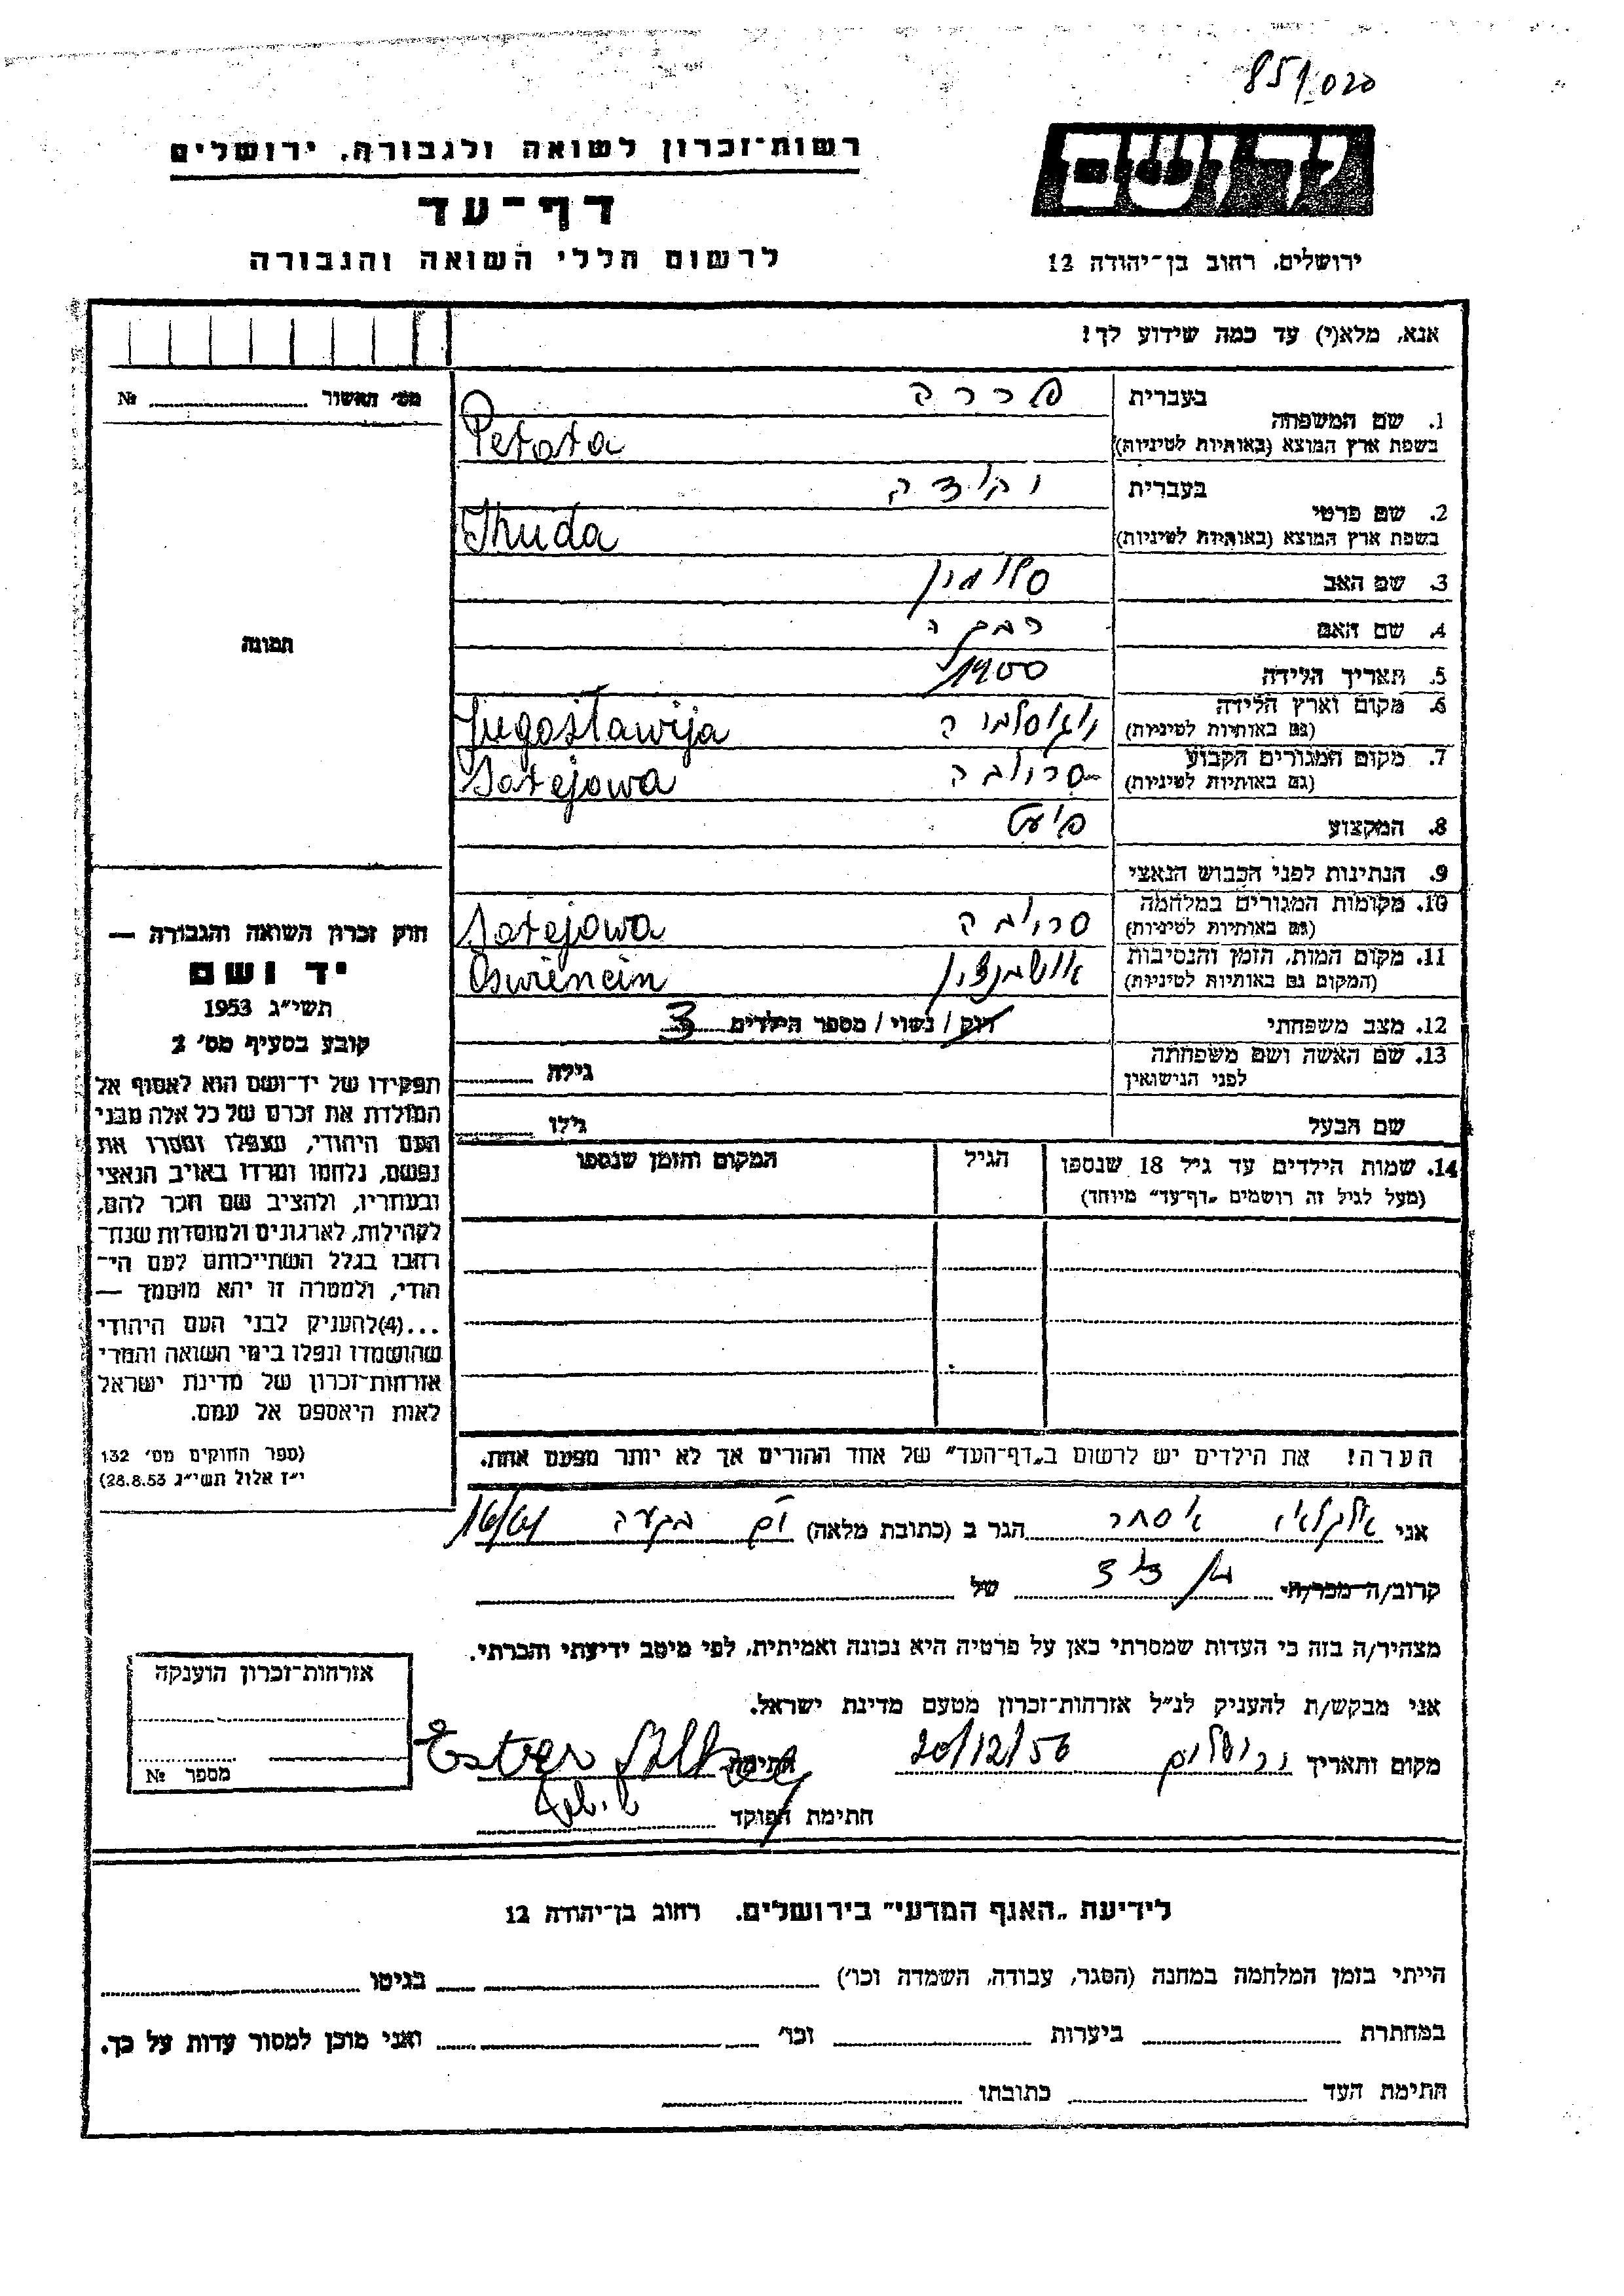 851/020
רשות־זכרון לשואה ולגבורה, ירושלים
יד ושם
דף־עד
לרשום חללי השואה והגבורה
ירושלים, רחוב בן־יהודה 12
אנא, מלא(י) עד כמה שידוע לך!
מס׳ האשור № 
1. שם המשפחה בעברית פררה
בשפת ארץ המוצא (באותיות לטיניות) Perera
2. שם פרטי בעברית יהודה
בשפת ארץ המוצא (באותיות לטיניות) Ihuda
3. שם האב סלומון
4. שם האם רבקה
תמונה
5. תאריך הלידה 1900
6. מקום וארץ הלידה יוגוסלביה
(גם באותיות לטיניות) Jugosławija
7. מקום המגורים הקבוע סריובה
(גם באותיות לטיניות) Sarejowa
8. המקצוע
9. הנתינות לפני הכבוש הנאצי
10. מקומות המגורים במלחמה סריובה
(גם באותיות לטיניות) Sarejowa
11. מקום המות, הזמן והנסיבות
(המקום גם באותיות לטיניות) Oswiencin
12. מצב משפחתי רוק / נשוי / מספר הילדים 3
13. שם האשה ושם משפחתה
לפני הנישואין גילה
שם הבעל גילו
14. שמות הילדים עד גיל 18 שנספו הגיל המקום והזמן שנספו
(מעל לגיל זה רושמים „דף־עד״ מיוחד)
חוק זכרון השואה והגבורה —
יד ושם
תשי״ג 1953
קובע בסעיף מס׳ 2
תפקידו של יד־ושם הוא לאסוף אל
המולדת את זכרם של כל אלה מבני
העם היהודי, שנפלו ומסרו את
נפשם, נלחמו ומרדו באויב הנאצי
ובעוזריו, ולהציב שם וזכר להם,
לקהילות, לארגונים ולמוסדות שנח־
רבו בגלל השתייכותם לעם הי־
הודי, ולמטרה זו יהא מוסמך —
...(4)להעניק לבני העם היהודי
שהושמדו ונפלו בימי השואה והמרי
אזרחות־זכרון של מדינת ישראל
לאות היאספם אל עמם.
(ספר החוקים מס׳ 132
י״ז אלול תשי״ג 28.8.53)
הערה! את הילדים יש לרשום ב„דף־העד״ של אחד ההורים אך לא יותר מפעם אחת.
אני אסתר הגר ב (כתובת מלאה) בקעה
קרוב/ה מכר/ת של
מצהיר/ה בזה כי העדות שמסרתי כאן על פרטיה היא נכונה ואמיתית, לפי מיטב ידיעתי והכרתי.
אני מבקש/ת להעניק לנ״ל אזרחות־זכרון מטעם מדינת ישראל.
מקום ותאריך ירושלים 20/12/56 חתימה Ester
חתימת הפוקד
אזרחות־זכרון הוענקה
מספר №
לידיעת „האגף המדעי״ בירושלים. רחוב בן־יהודה 12
הייתי בזמן המלחמה במחנה (הסגר, עבודה, השמדה וכו׳) בגיטו
במחתרת ביערות וכו׳ ואני מוכן למסור עדות על כך.
חתימת העד כתובתו